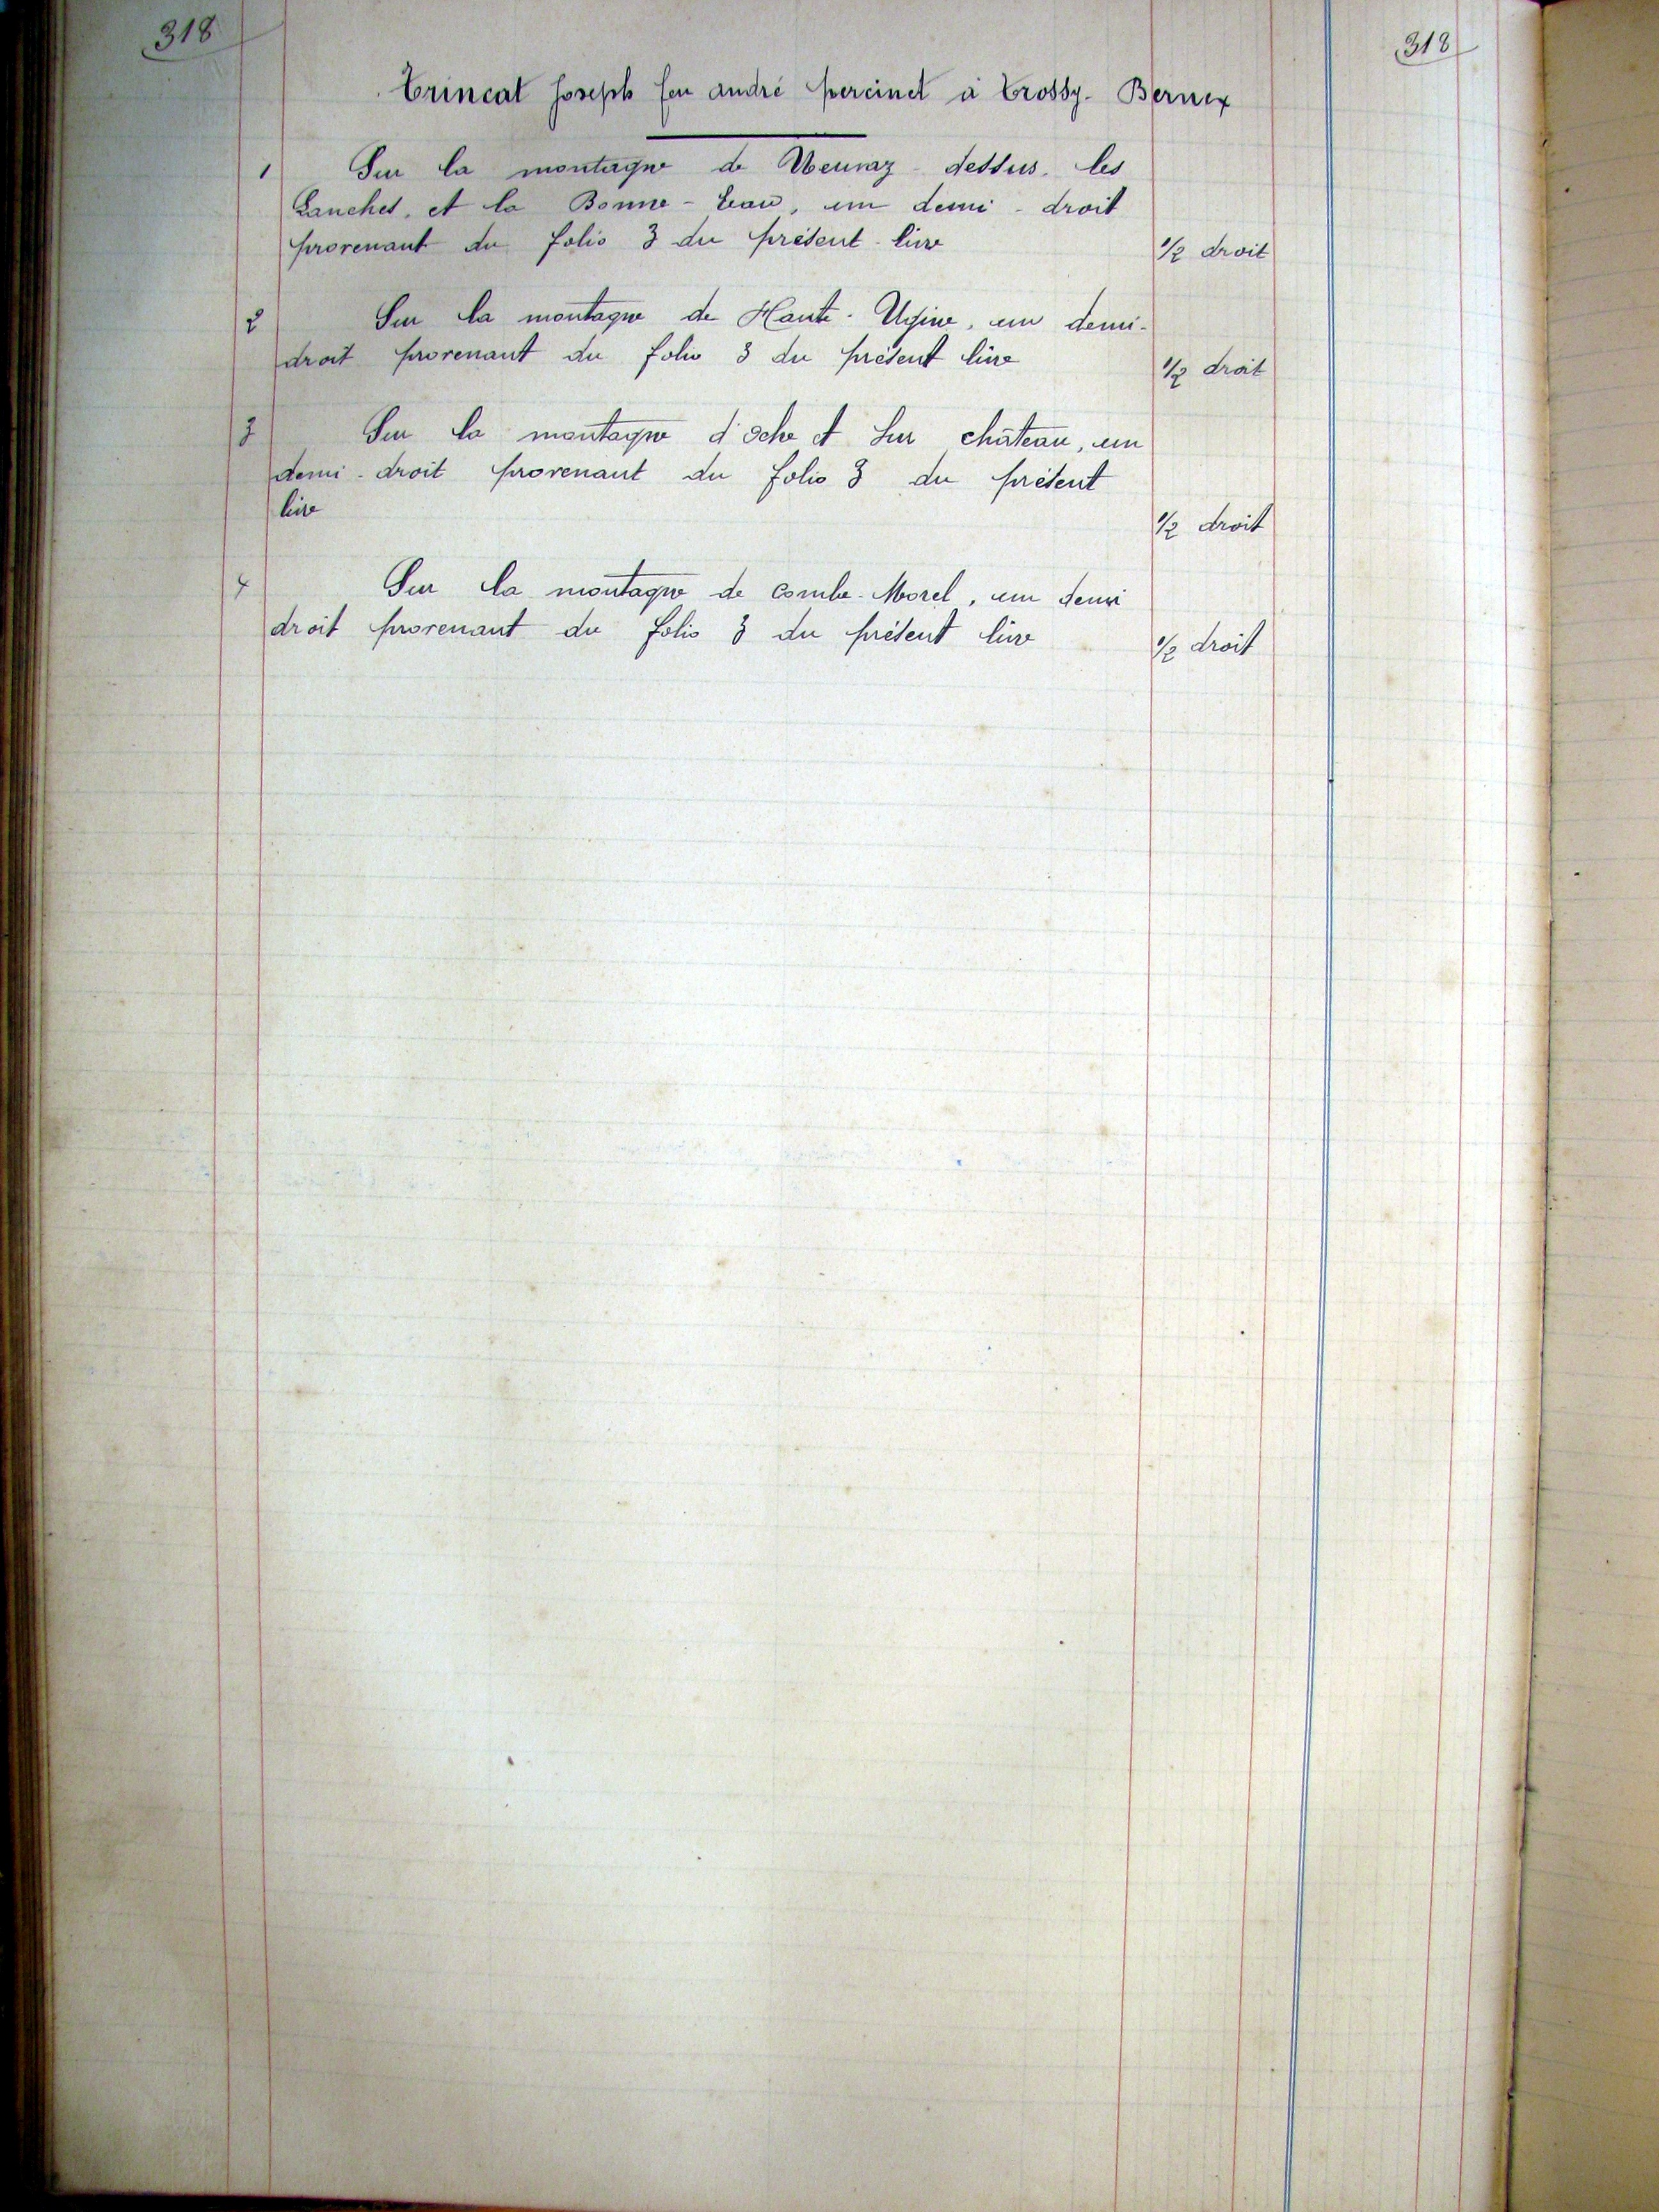 318
318
Trincat Joseph feu andré percinet à Trossy. Bernex
1 Sur la montagne de Neuvaz - dessus, les
Lanches, et la Bonne - Eau, un demi - droit
provenant du folio 3 du présent livre
1/2 droit
2 Sur la montagne de Haute - Ugine, un demi-
droit provenant du folio 3 du présent livre
1/2 droit
3 Sur la montagne d'oche et sur château, un
demi - droit provenant du folio 3 du présent
livre
1/2 droit
4 Sur la montagne de combe - Morel, un demi
droit provenant du folio 3 du présent livre
1/2 droit